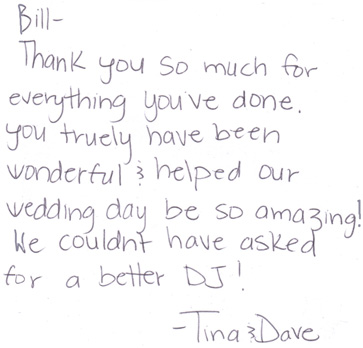 Bill-
Thank you so much for
everything you've done.
you truely have been
wonderful & helped our
wedding day be so amazing!
We couldnt have asked
for a better DJ!
-Tina & Dave